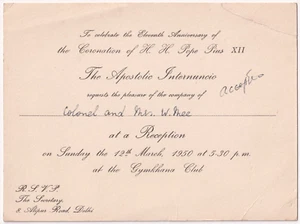 To celebrate the Eleventh Anniversary of
the Coronation of H H Pope Pius XII
The Apostolic Internuncio
requests the pleasure of the company of
accepted
Colonel and Mrs. W. Mee
at a Reception
on Sunday the 12th March, 1950 at 5-30 p.m.
at the Gymkhana Club
R.S.V.P.
The Secretary,
8, Alipur Road, Delhi